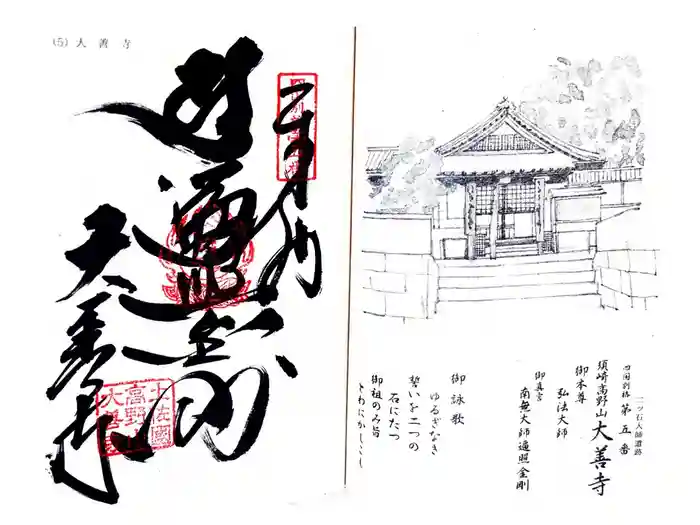 (5) 大善寺
奉納
遍照金剛
大善寺
土佐国
高野山
大善寺
二ッ石大師遺跡
四国別格 第五番
須崎高野山 大善寺
御本尊
弘法大師
御真言
南無大師遍照金剛
御詠歌
ゆるぎなき
誓いを二つの
石にたつ
御祖のみ旨
とわにかしこし